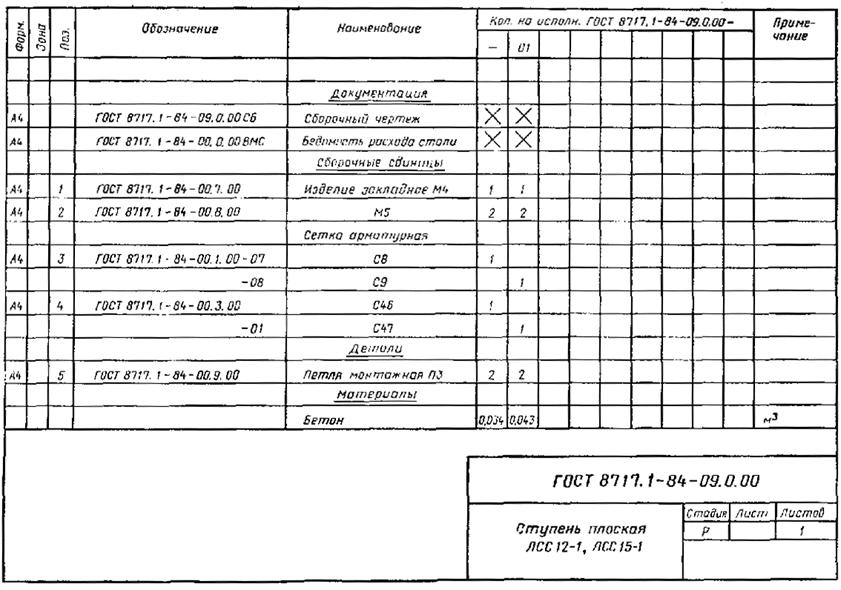 Форм. Зона Поз. Обозначение Наименование Кол. на исполн. ГОСТ 8717.1-84-09.0.00- Приме-
чание
— 01
Документация
А4 ГОСТ 8717.1-84-09.0.00СБ Сборочный чертеж X X
А4 ГОСТ 8717.1-84-00.0.00ВМС Ведомость расхода стали X X
Сборочные единицы
А4 1 ГОСТ 8717.1-84-00.7.00 Изделие закладное М4 1 1
А4 2 ГОСТ 8717.1-84-00.8.00 М5 2 2
Сетка арматурная
А4 3 ГОСТ 8717.1-84-00.1.00-07 С8 1
-08 С9 1
А4 4 ГОСТ 8717.1-84-00.3.00 С46 1
-01 С47 1
Детали
А4 5 ГОСТ 8717.1-84-00.9.00 Петля монтажная П3 2 2
Материалы
Бетон 0,034 0,043 м³
ГОСТ 8717.1-84-09.0.00
Ступень плоская
ЛСС12-1, ЛСС15-1
Стадия Лист Листов
Р 1